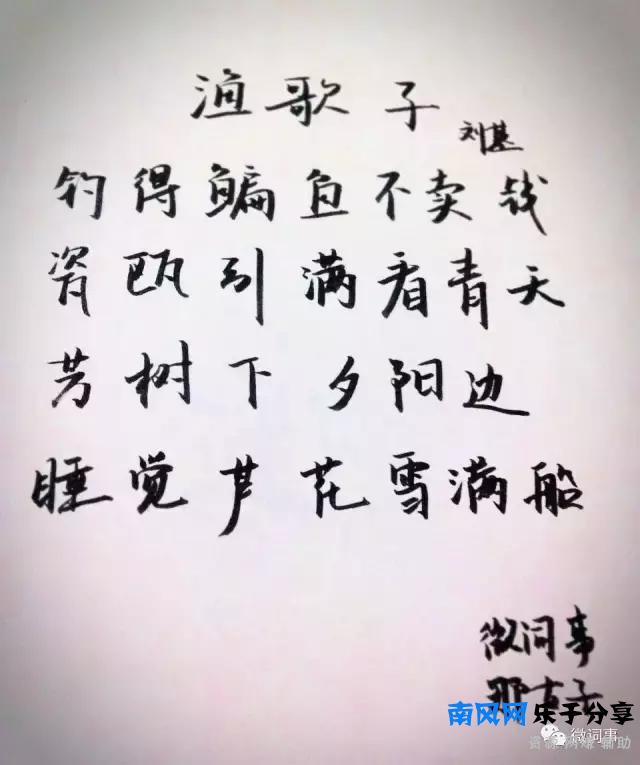 渔歌子
刘基
钓得鳊鱼不卖钱
瓷瓯引满看青天
芳树下夕阳边
睡觉芦花雪满船
微词事
南风网 乐子分享
微词事